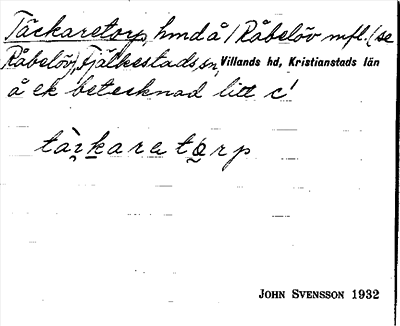 Täckaretorp, hmd å 1 Råbelöv mfl. (se
Råbelöv), Fjälkestads sn, Villands hd, Kristianstads län
å ek betecknad litt c'
tàrkaretorp
JOHN SVENSSON 1932